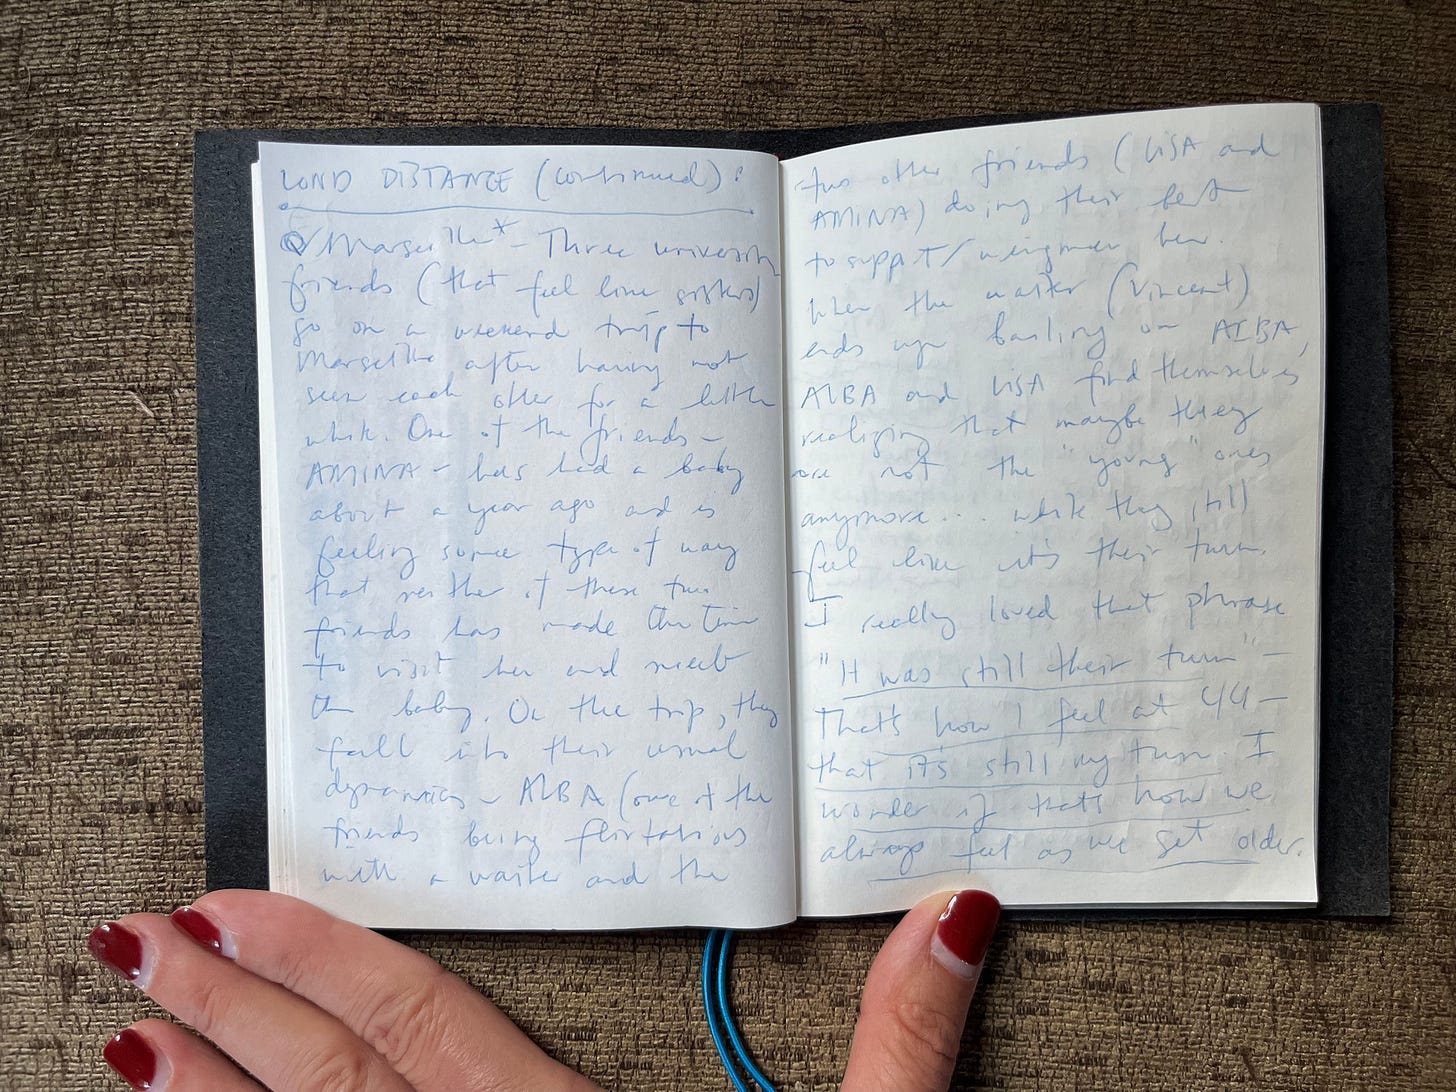 LONG DISTANCE (continued):
Marseille* - Three university
friends (that feel like sisters)
go on a weekend trip to
Marseille after having not
seen each other for a little
while. One of the friends -
AMINA - has had a baby
about a year ago and is
feeling some type of way
that neither of these two
friends has made the time
to visit her and meet
the baby. On the trip, they
fall into their usual
dynamics - ALBA (one of the
friends being flirtatious
with a waiter and the
two other friends (LISA and
AMINA) doing their best
to support/wingmen her.
When the waiter (Vincent)
ends up bailing on ALBA,
ALBA and LISA find themselves
realizing that maybe they
are not the "young" ones
anymore... while they still
feel like it's their turn.
I really loved that phrase
"It was still their turn" -
That's how I feel at 44 -
that it's still my turn. I
wonder if that's how we
always feel as we get older.